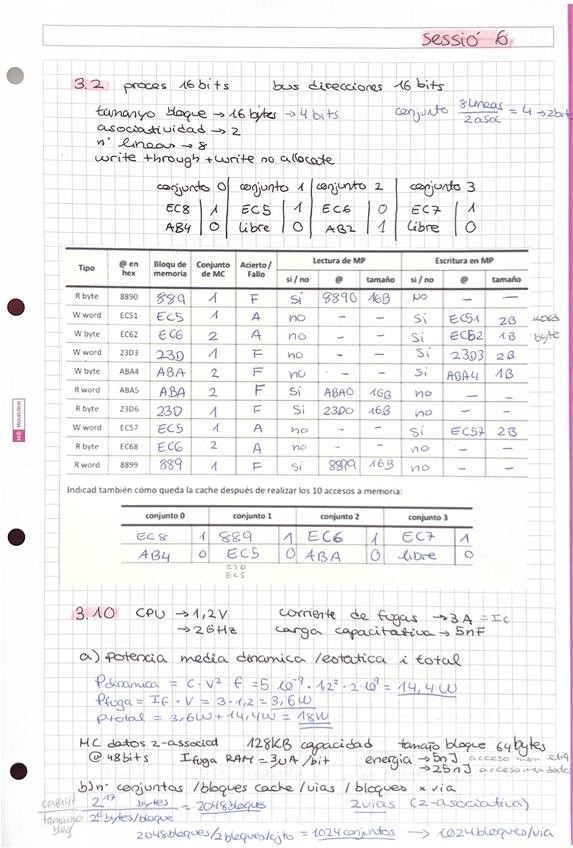 sessió 6
3.2 proces 16 bits bus direcciones 16 bits
tamanyo bloque → 16 bytes → 4 bits conjunto 8 lineas / 2 asoc = 4 → 2 bit
asociatividad → 2
nº lineas → 8
write through + write no allocate
conjunto 0 conjunto 1 conjunto 2 conjunto 3
EC8 1 EC5 1 EC6 0 EC7 1
AB4 0 libre 0 AB2 1 libre 0
Tipo @ en hex Bloqu de memoria Conjunto de MC Acierto / Fallo Lectura de MP Escritura en MP
si / no @ tamaño si / no @ tamaño
R byte 8890 889 1 F Si 8890 16B NO – –
W word EC51 EC5 1 A no – – Si EC51 2B word
W byte EC62 EC6 2 A no – – Si EC62 1B byte
W word 23D3 23D 1 F no – – Si 23D3 2B
W byte ABA4 ABA 2 F no – – Si ABA4 1B
R word ABA5 ABA 2 F Si ABA0 16B no – –
R byte 23D6 23D 1 F Si 23D0 16B no – –
W word EC57 EC5 1 A no – – Si EC57 2B
R byte EC68 EC6 2 A no – – no – –
R word 8899 889 1 F Si 8899 16B no – –
Indicad también cómo queda la cache después de realizar los 10 accesos a memoria:
conjunto 0 conjunto 1 conjunto 2 conjunto 3
EC8 1 889 1 EC6 1 EC7 1
AB4 0 EC5 0 ABA 0 libre 0
23D
EC5
MIQUELRIUS
3.10 CPU → 1,2V corriente de fugas → 3A = If
→ 2GHz carga capacitativa → 5nF
a) potencia media dinamica / estatica i total
Pdinamica = C · V² · f = 5 · 10⁻⁹ · 1,2² · 2 · 10⁹ = 14,4 W
Pfuga = If · V = 3 · 1,2 = 3,6W
Ptotal = 3,6W + 14,4W = 18W
MC datos 2-associad 128KB capacidad tamaño bloque 64 bytes
@ 48bits Ifuga RAM = 3µA / bit energia → 5nJ acceso mem etiq
→ 25nJ acceso mem datos
b) nº conjuntos / bloques cache / vias / bloques x via
capacit / tamaño bloq 2¹⁷ bytes / 2⁶ bytes/bloque = 2048 bloques 2 vias (2-asociativa)
2048 bloques / 2 bloques/cjto = 1024 conjuntos → 1024 bloques/via